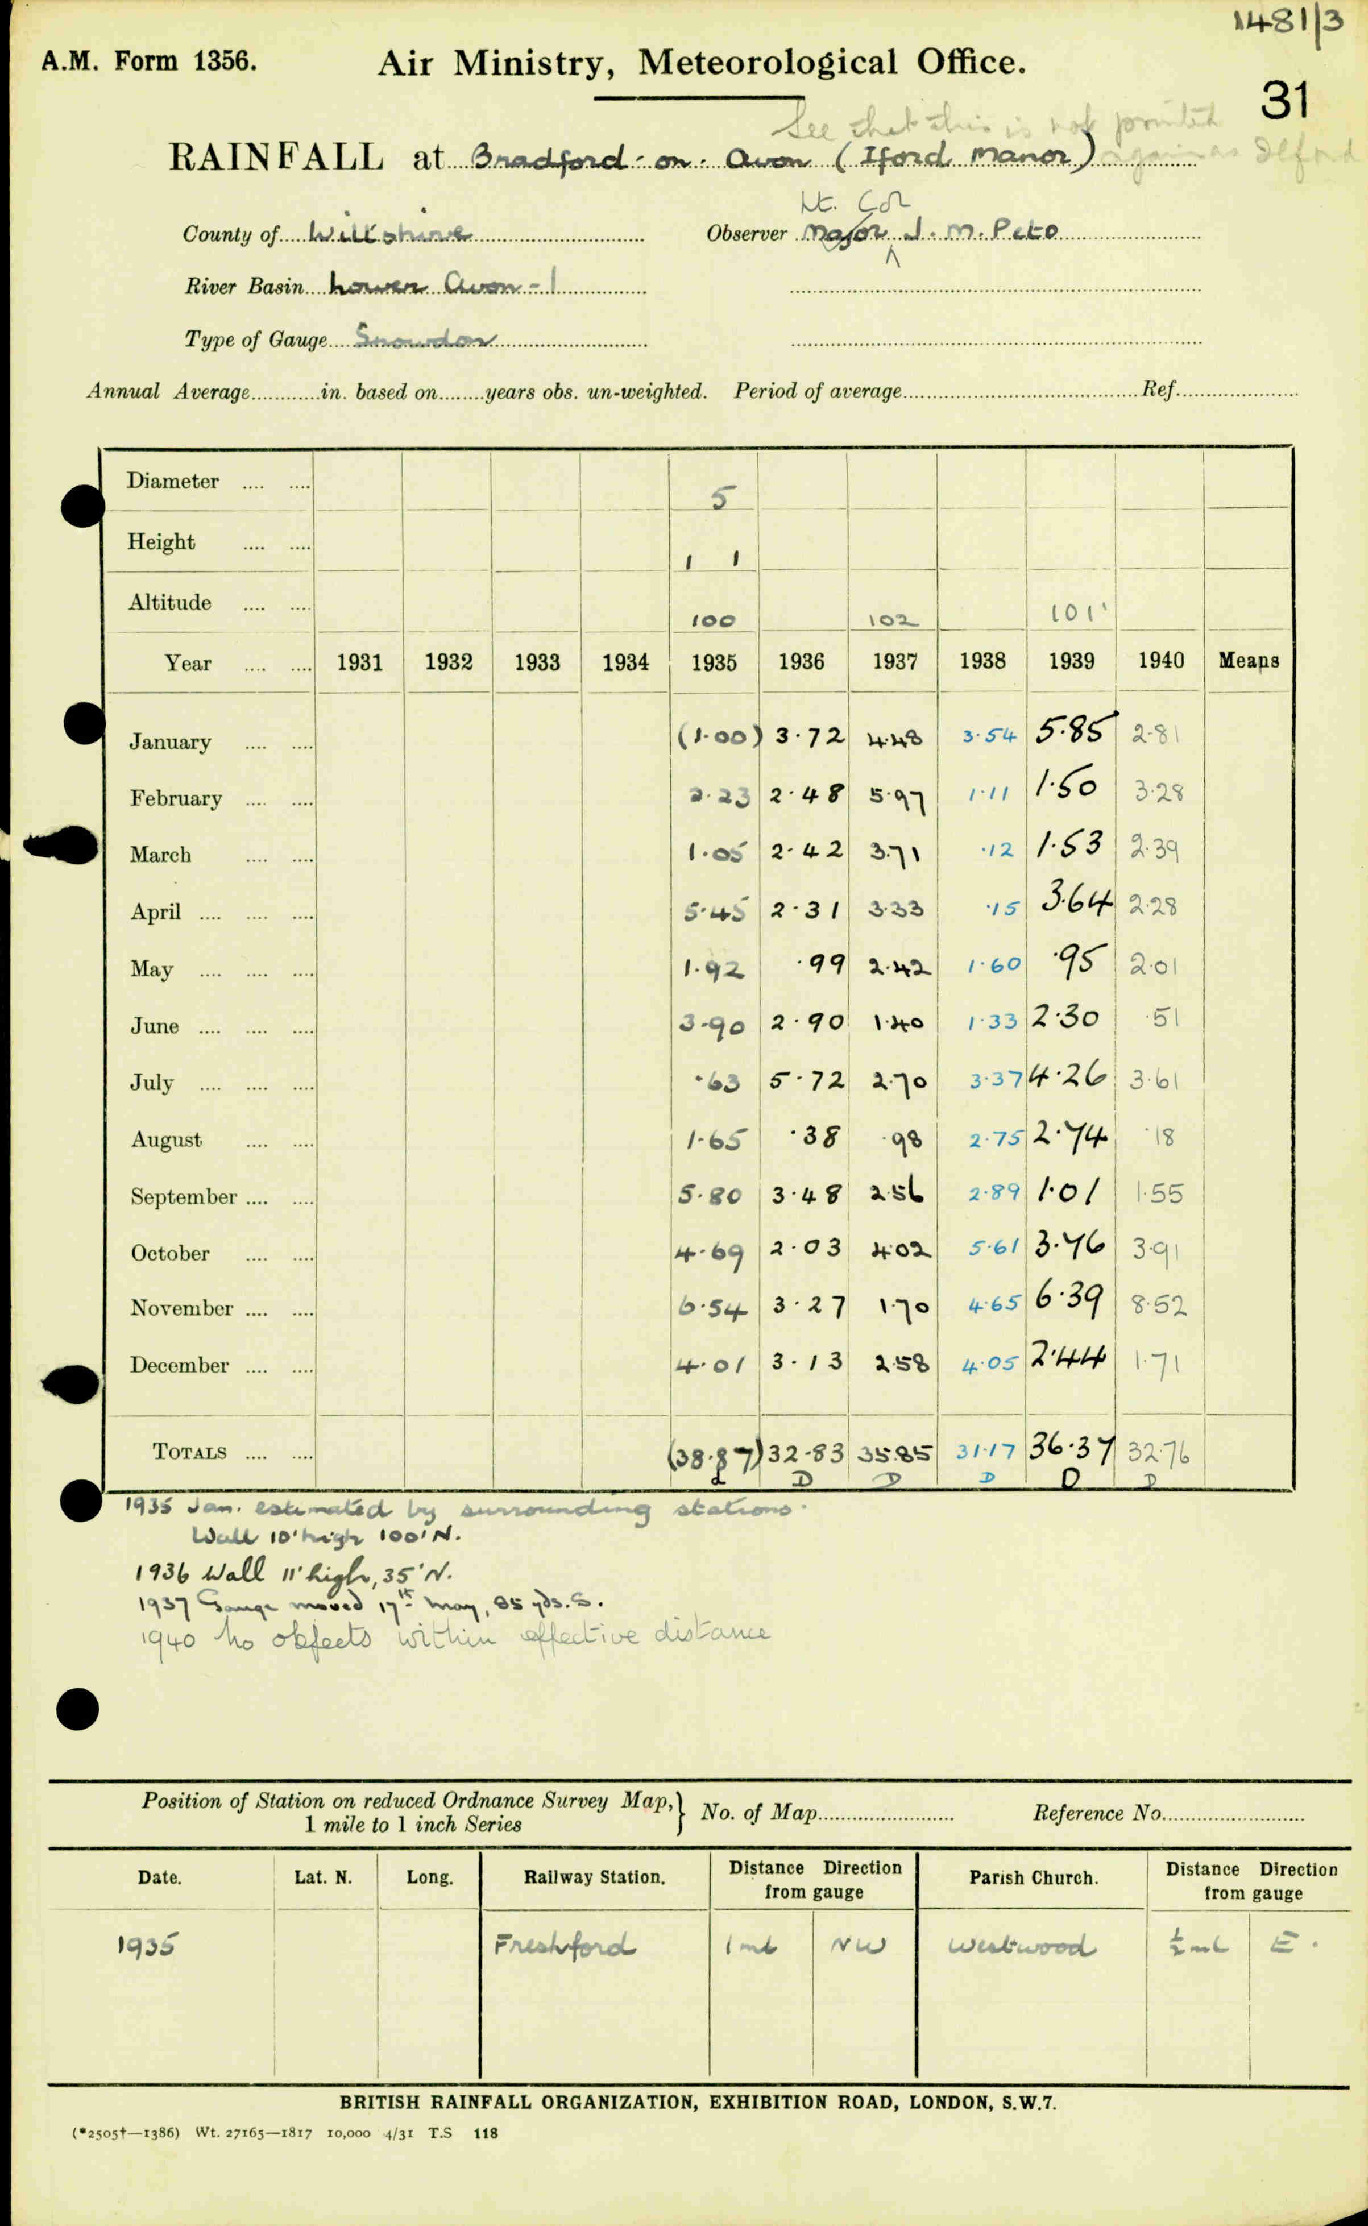 1481/3
A.M. Form 1356.
Air Ministry, Meteorological Office.
31
See that this is not printed
again as Ilford
RAINFALL at Bradford-on-Avon (Iford Manor)
Lt. Col
County of Wiltshire Observer Major J. M. Peto
River Basin Lower Avon - 1
Type of Gauge Snowdon
Annual Average in. based on years obs. un-weighted. Period of average Ref.
Diameter 5
Height 1 1
Altitude 100 102 101'
Year 1931 1932 1933 1934 1935 1936 1937 1938 1939 1940 Means
January (1.00) 3.72 4.48 3.54 5.85 2.81
February 2.23 2.48 5.97 1.11 1.50 3.28
March 1.05 2.42 3.71 .12 1.53 2.39
April 5.45 2.31 3.33 .15 3.64 2.28
May 1.92 .99 2.42 1.60 .95 2.01
June 3.90 2.90 1.40 1.33 2.30 .51
July .63 5.72 2.70 3.37 4.26 3.61
August 1.65 .38 .98 2.75 2.74 .18
September 5.80 3.48 2.56 2.89 1.01 1.55
October 4.69 2.03 4.02 5.61 3.76 3.91
November 6.54 3.27 1.70 4.65 6.39 8.52
December 4.01 3.13 2.58 4.05 2.44 1.71
TOTALS (38.87) 32.83 35.85 31.17 36.37 32.76
D D D D D
1935 Jan. estimated by surrounding stations.
Wall 10' high 100' N.
1936 Wall 11' high, 35' N.
1937 Gauge moved 17th May, 85 yds. S.
1940 No objects within effective distance
Position of Station on reduced Ordnance Survey Map, } No. of Map Reference No.
1 mile to 1 inch Series
Date. Lat. N. Long. Railway Station. Distance Direction from gauge Parish Church. Distance Direction from gauge
1935 Freshford 1 ml NW Westwood ½ ml E.
BRITISH RAINFALL ORGANIZATION, EXHIBITION ROAD, LONDON, S.W.7.
(*2505†—1386) Wt. 27165—1817 10,000 4/31 T.S 118